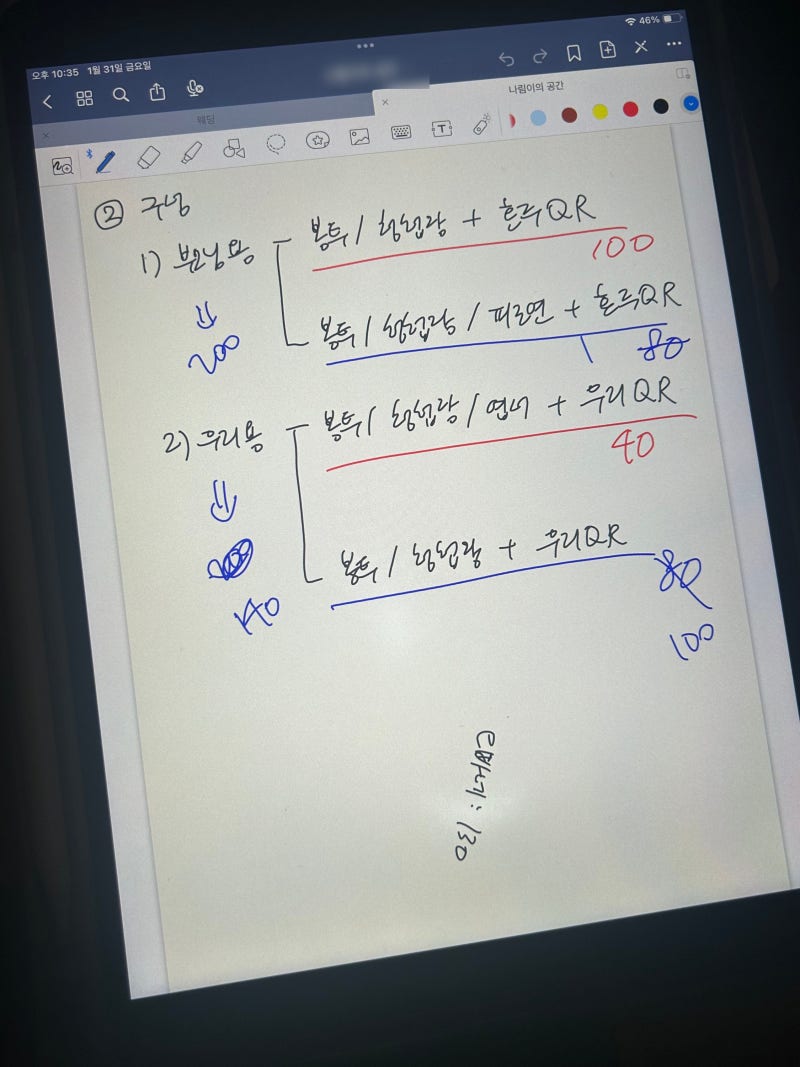 오후 10:35 1월 31일 금요일
46%
웨딩
나림이의 공간
② 구성
1) 부모님용
봉투 / 청첩장 + 혼주QR
100
⇓
200
봉투 / 청첩장 / 피로연 + 혼주QR
80
2) 우리용
봉투 / 청첩장 / 엽서 + 우리QR
40
⇓
200
140
봉투 / 청첩장 + 우리QR
80
100
: 130